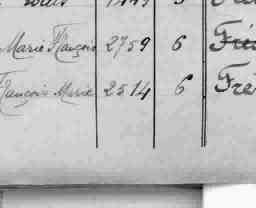 Marie François 2759 6 Fré
François Marie 2514 6 Fré